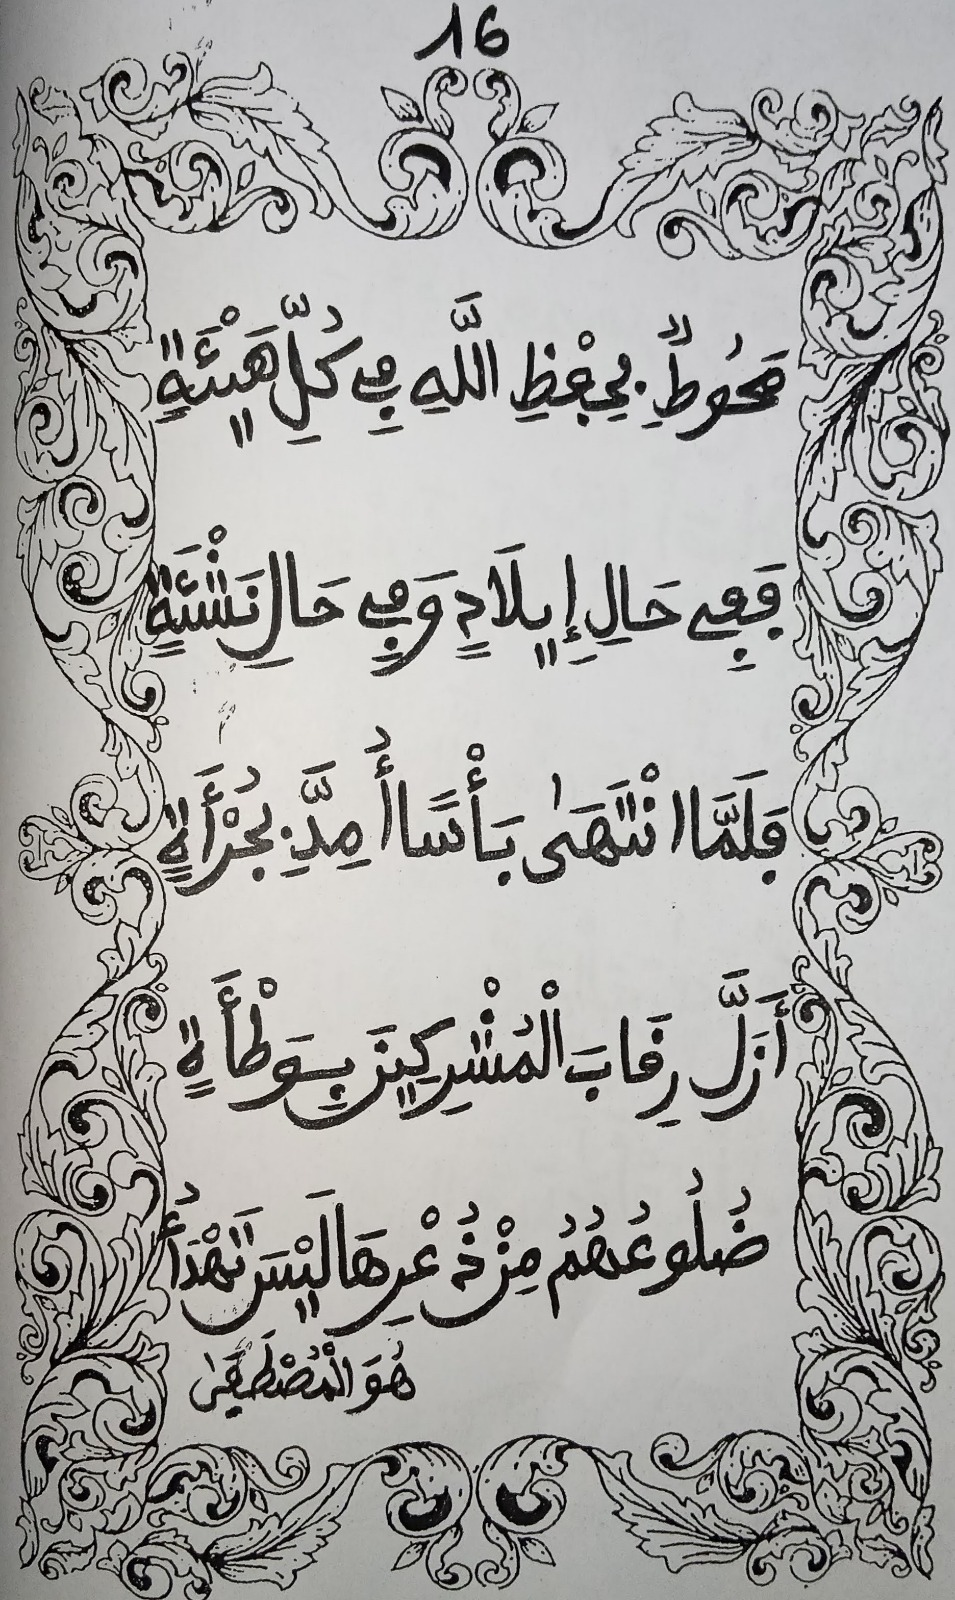 16
مَحُوطٌ بِحِفْظِ اللَّهِ فِي كُلِّ هَيْئَةٍ
فَفِي حَالِ إِيلَادٍ وَفِي حَالِ نَشْئَةٍ
فَلَمَّا انْتَهَىٰ بَأْسًا أُمِدَّ بِجُرْأَةٍ
أَزَلَّ رِقَابَ الْمُشْرِكِينَ بِوَطْأَةٍ
ضُلُوعُهُمُ مِنْ ذُعْرِهَا لَيْسَ تَهْدَأُ
هُوَ الْمُصْطَفَىٰ